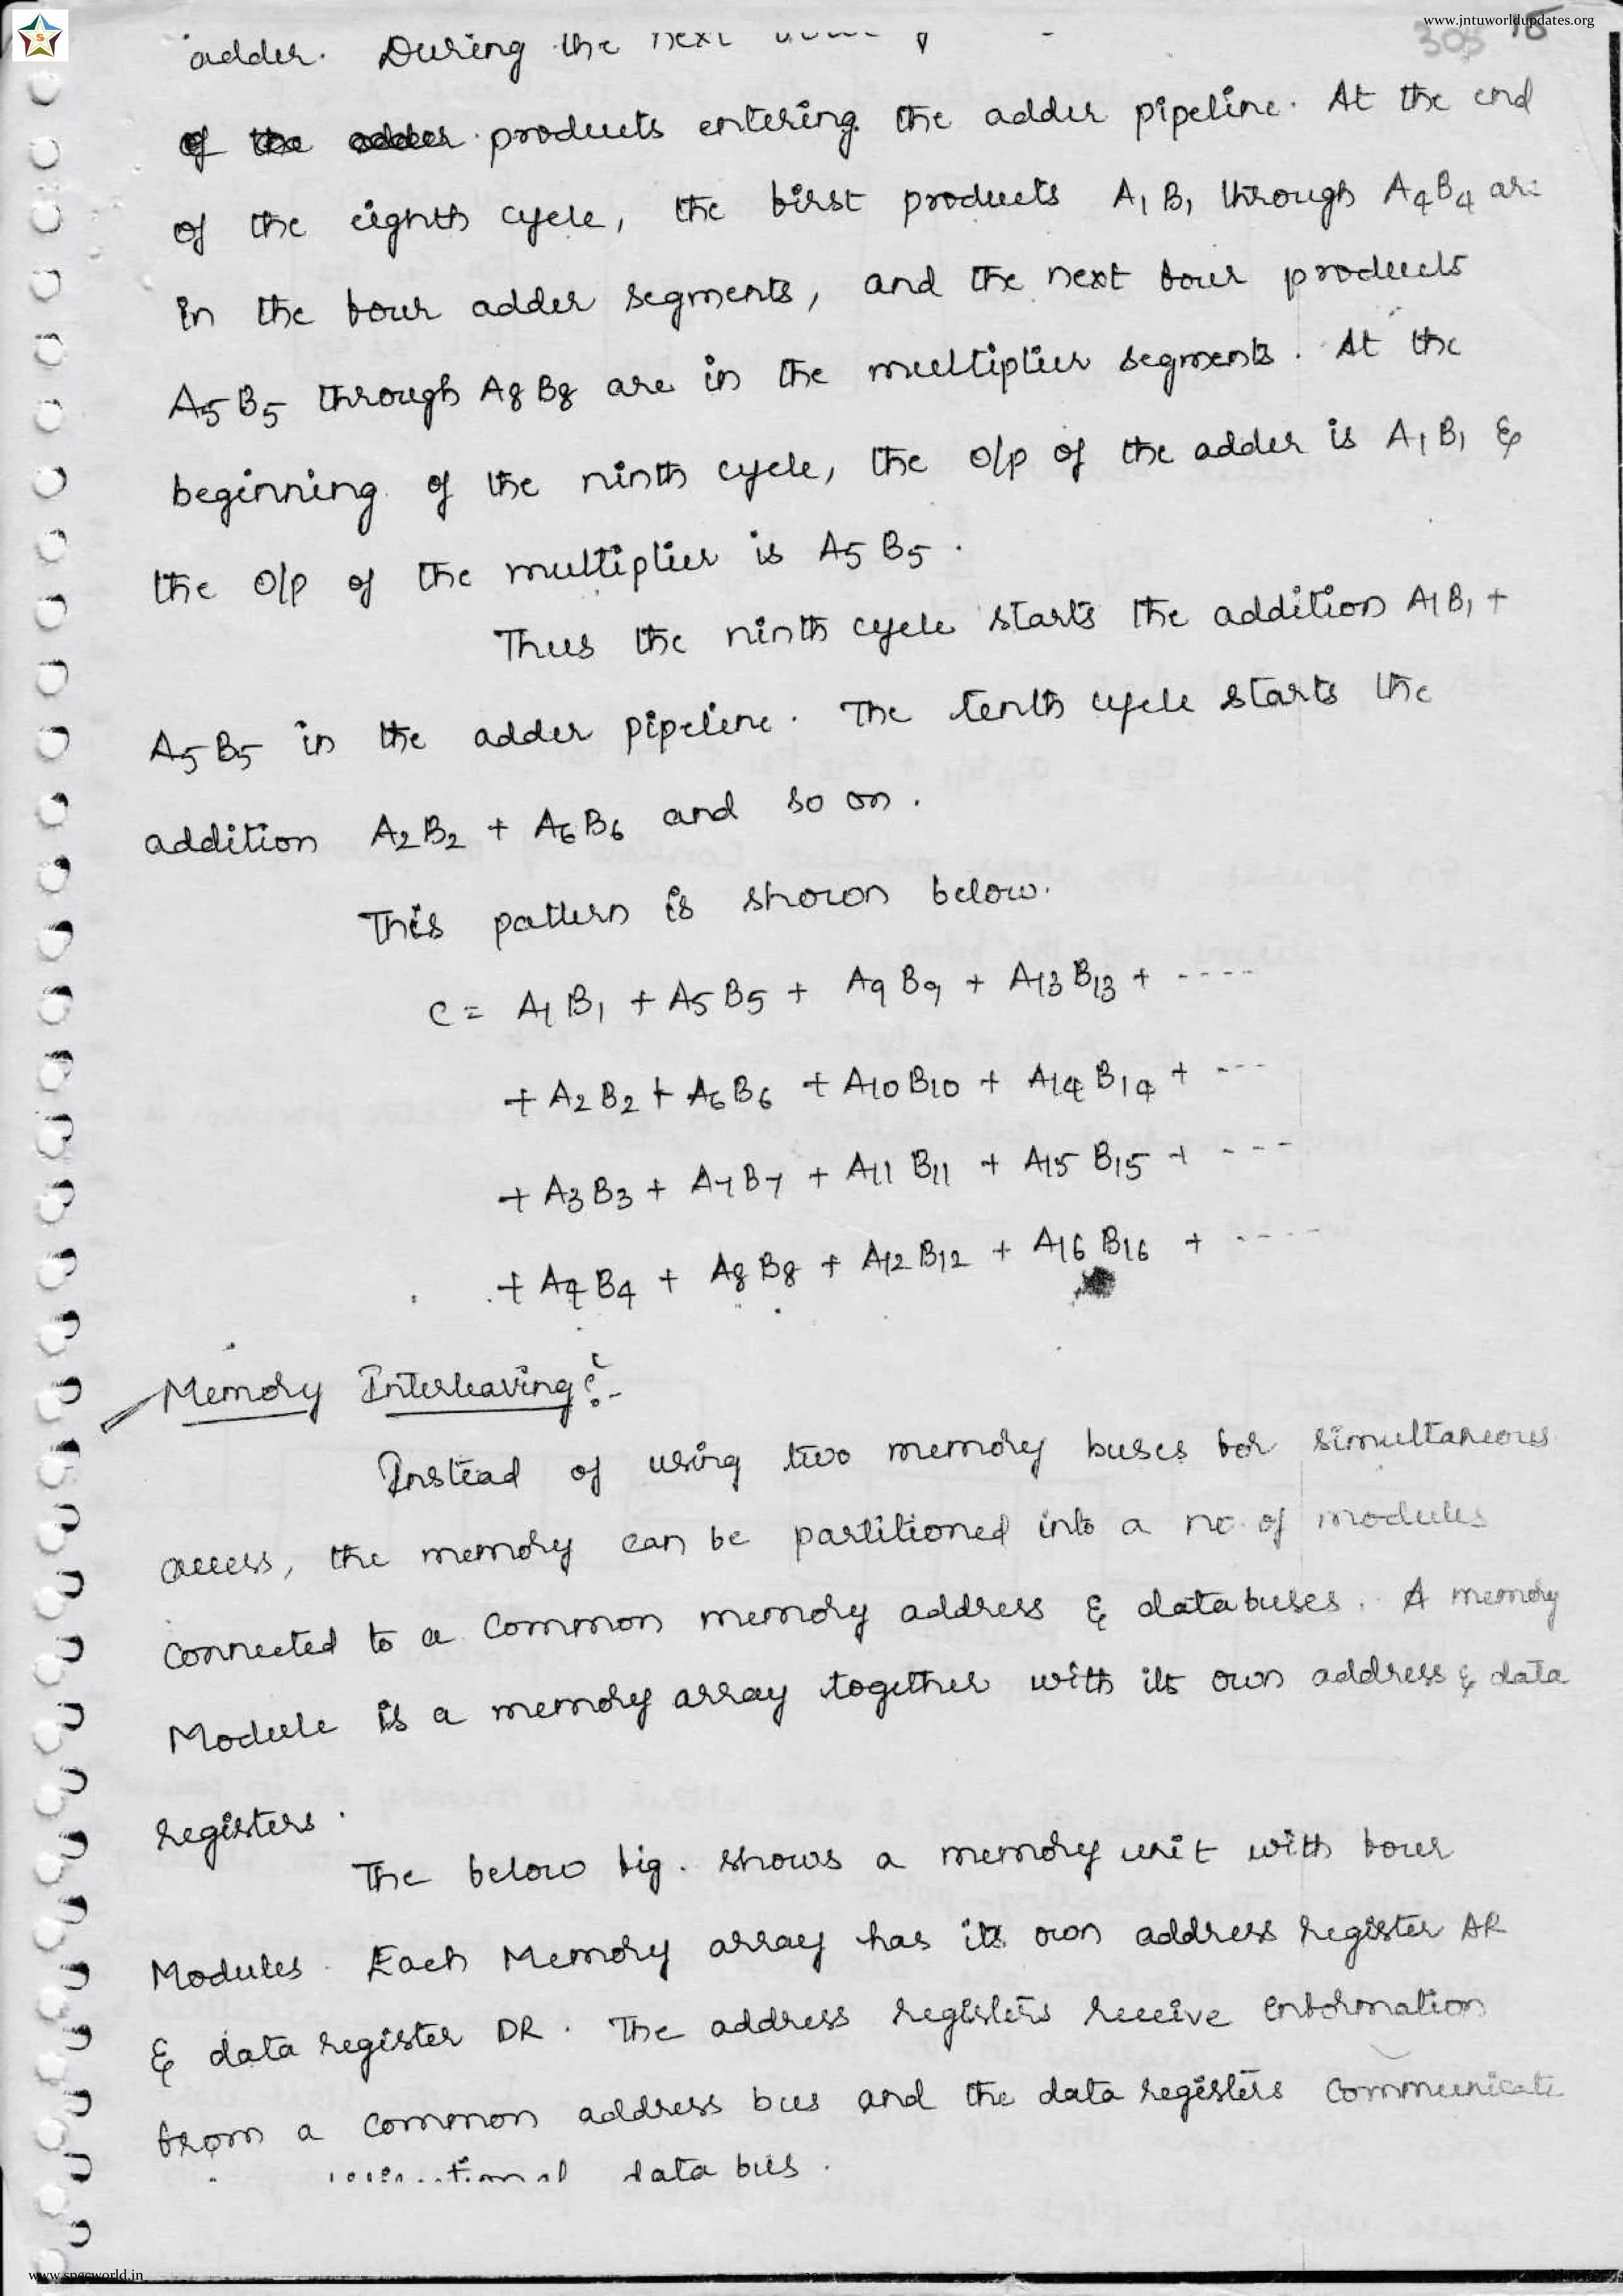 www.jntuworldupdates.org
S
305 15
adder. During the next
of the adder products entering the adder pipeline. At the end
of the eighth cycle, the first products A1 B1 through A4 B4 are
in the four adder segments, and the next four products
A5 B5 through A8 B8 are in the multiplier segments. At the
beginning of the ninth cycle, the o/p of the adder is A1 B1 &
the o/p of the multiplier is A5 B5.
Thus the ninth cycle starts the addition A1 B1 +
A5 B5 in the adder pipeline. The tenth cycle starts the
addition A2 B2 + A6 B6 and so on.
This pattern is shown below.
C = A1 B1 + A5 B5 + A9 B9 + A13 B13 + ----
+ A2 B2 + A6 B6 + A10 B10 + A14 B14 + ---
+ A3 B3 + A7 B7 + A11 B11 + A15 B15 + ---
+ A4 B4 + A8 B8 + A12 B12 + A16 B16 + ----
Memory Interleaving :-
Instead of using two memory buses for simultaneous
access, the memory can be partitioned into a no. of modules
connected to a common memory address & data buses. A memory
Module is a memory array together with its own address & data
registers.
The below fig. shows a memory unit with four
Modules. Each Memory array has its own address register AR
& data register DR. The address registers receive information
from a common address bus and the data registers communicate
data bus.
www.specworld.in